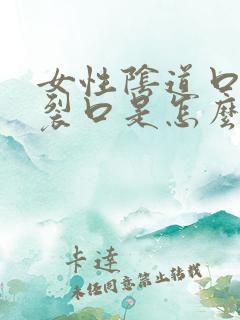 女性陰道口
裂口是怎麼
卡達
未經同意禁止轉載